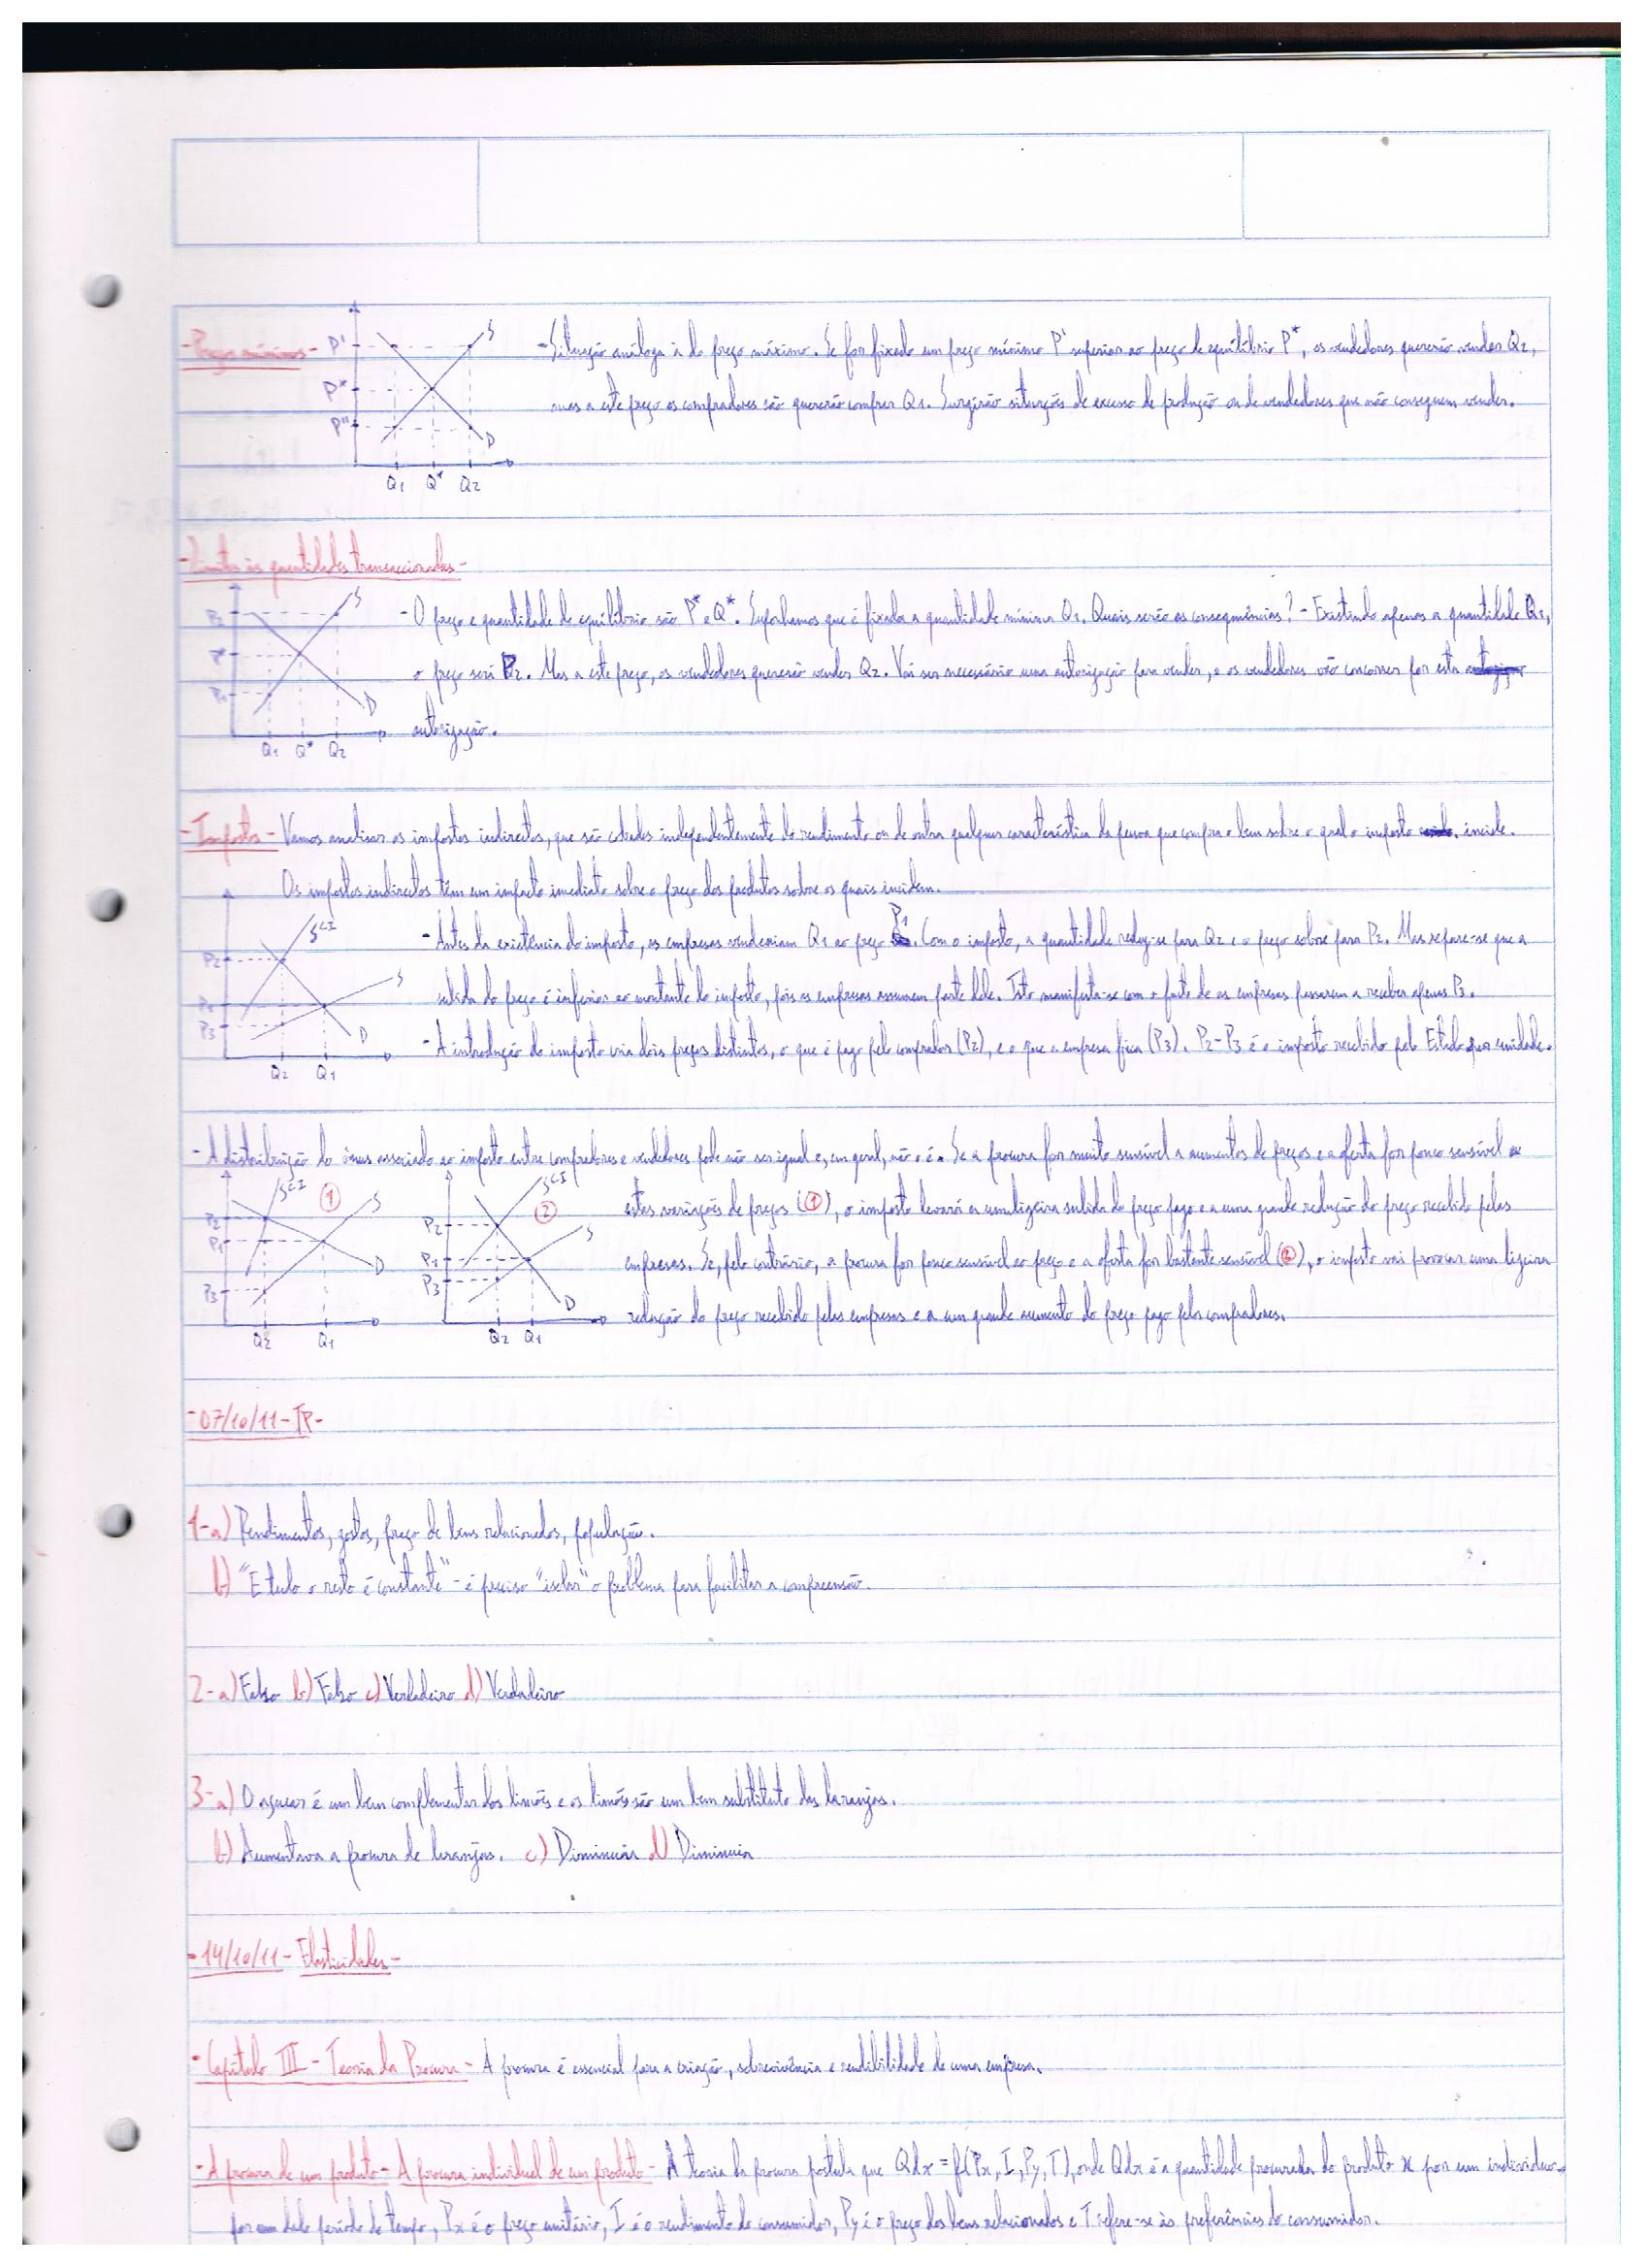 -Preços mínimos- P' S -Situação análoga à do preço máximo. Se for fixado um preço mínimo P' superior ao preço de equilíbrio P*, os vendedores quererão vender Q2,
P* mas a este preço os compradores só quererão comprar Q1. Surgirão situações de excesso de produção ou de vendedores que não conseguem vender.
P'' D
Q1 Q* Q2
-Limites às quantidades transaccionadas-
P2 S -O preço e quantidade de equilíbrio são P* e Q*. Suponhamos que é fixada a quantidade mínima Q1. Quais serão as consequências? - Existindo apenas a quantidade Q1,
P* o preço será P2. Mas a este preço, os vendedores quererão vender Q2. Vai ser necessário uma autorização para vender, e os vendedores vão concorrer por esta
P1 D autorização.
Q1 Q* Q2
-Impostos- Vamos analisar os impostos indirectos, que são cobrados independentemente do rendimento ou de outra qualquer característica da pessoa que compra o bem sobre o qual o imposto incide.
Os impostos indirectos têm um impacto imediato sobre o preço dos produtos sobre os quais incidem.
S^CI -Antes da existência do imposto, as empresas venderiam Q1 ao preço P1. Com o imposto, a quantidade reduz-se para Q2 e o preço sobre para P2. Mas repare-se que a
P2 S subida do preço é inferior ao montante do imposto, pois as empresas assumem parte dele. Isto manifesta-se com o facto de as empresas passarem a receber apenas P3.
P1
P3 D -A introdução do imposto cria dois preços distintos, o que é pago pelo comprador (P2), e o que a empresa fica (P3). P2-P3 é o imposto recebido pelo Estado por unidade.
Q2 Q1
-A distribuição do ónus associado ao imposto entre compradores e vendedores pode não ser igual e, em geral, não o é. Se a procura for muito sensível a aumentos de preços e a oferta for pouco sensível a
S^CI 1 S S^CI 2 estas variações de preços (1), o imposto levará a uma ligeira subida do preço pago e a uma grande redução do preço recebido pelas
P2 P1 D P2 P1 S empresas. Se, pelo contrário, a procura for pouco sensível ao preço e a oferta for bastante sensível (2), o imposto vai provocar uma ligeira
P3 P3 D redução do preço recebido pelas empresas e a um grande aumento do preço pago pelos compradores.
Q2 Q1 Q2 Q1
-07/10/11-TP-
1-a) Rendimentos, gostos, preço de bens relacionados, população.
b) "E tudo o resto é constante" - é preciso "isolar" o problema para facilitar a compreensão.
2-a) Falso b) Falso c) Verdadeiro d) Verdadeiro
3-a) O açucar é um bem complementar dos limões e os limões são um bem substituto das laranjas.
b) Aumentava a procura de laranjas. c) Diminuía d) Diminuía
-14/10/11-Elasticidades-
-Capítulo III - Teoria da Procura - A procura é essencial para a criação, sobrevivência e rendibilidade de uma empresa.
-A procura de um produto - A procura individual de um produto - A teoria da procura postula que Qdx = f(Px, I, Py, T), onde Qdx é a quantidade procurada do produto x por um indivíduo
por um dado período de tempo, Px é o preço unitário, I é o rendimento do consumidor, Py é o preço dos bens relacionados e T refere-se às preferências do consumidor.